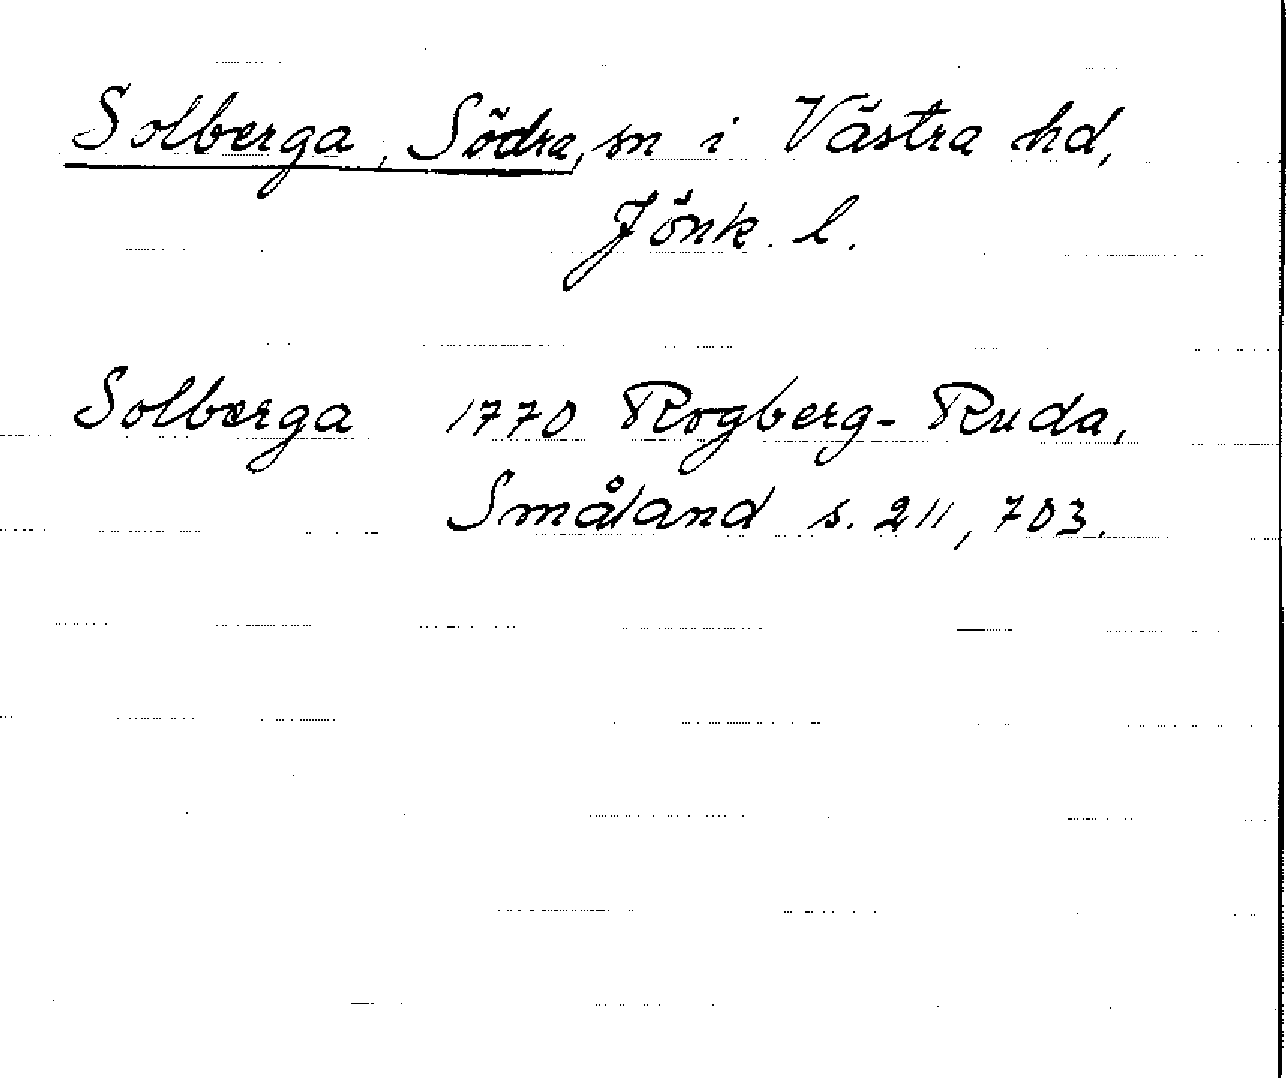 Solberga, Södra, sn i Västra hd,
Jönk. l.
Solberga 1770 Rogberg-Ruda,
Småland s. 211, 703.